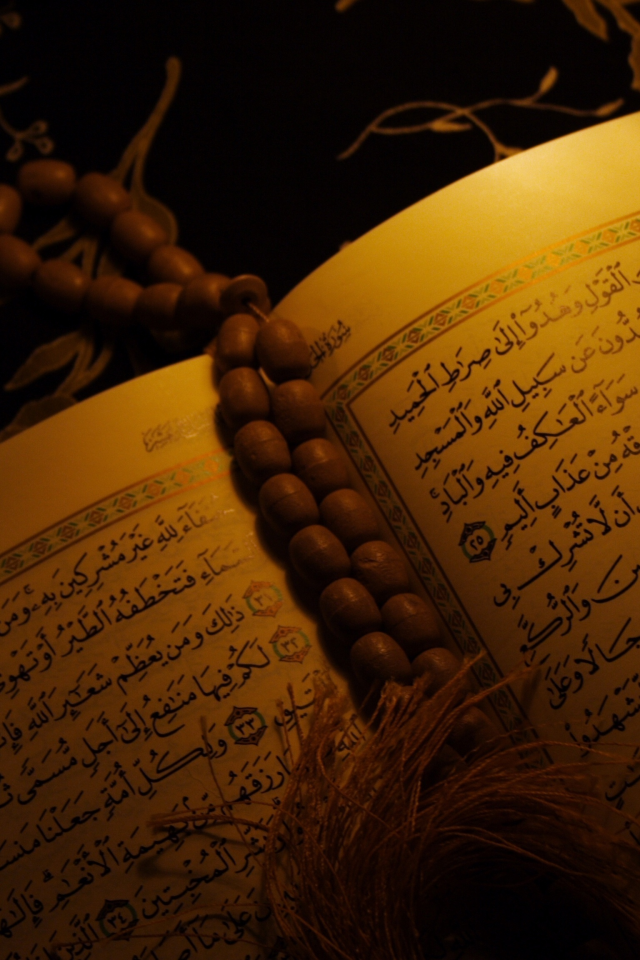 سُورَةُ
ٱلْقَوْلِ وَهُدُوٓا۟ إِلَىٰ صِرَٰطِ ٱلْحَمِيدِ
عَن سَبِيلِ ٱللَّهِ وَٱلْمَسْجِدِ
سَوَآءً ٱلْعَٰكِفُ فِيهِ وَٱلْبَادِ ۚ
مِنْ عَذَابٍ أَلِيمٍ ٢٥
أَن لَّا تُشْرِكْ بِى
وَٱلرُّكَّعِ
وَعَلَىٰ
حُنَفَآءَ لِلَّهِ غَيْرَ مُشْرِكِينَ بِهِۦ ۚ وَمَن
ٱلسَّمَآءِ فَتَخْطَفُهُ ٱلطَّيْرُ أَوْ تَهْوِى
٣١ ذَٰلِكَ وَمَن يُعَظِّمْ شَعَٰٓئِرَ ٱللَّهِ
٣٢ لَكُمْ فِيهَا مَنَٰفِعُ إِلَىٰٓ أَجَلٍ مُّسَمًّى
٣٣ وَلِكُلِّ أُمَّةٍ جَعَلْنَا
رَزَقَهُم مِّنۢ بَهِيمَةِ ٱلْأَنْعَٰمِ ۗ
ٱلْمُخْبِتِينَ ٣٤ ٱلَّذِينَ
عَلَىٰ مَآ